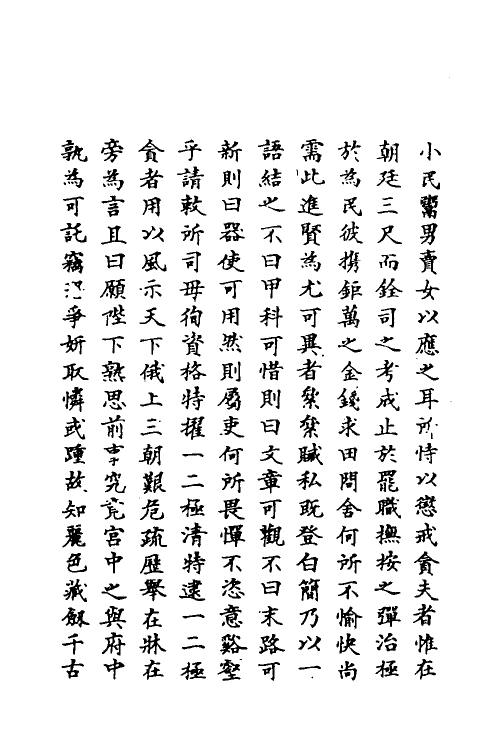 小民鬻男賣女以應之耳所恃以懲戒貪夫者惟在
朝廷三尺而銓司之考成止於罷職撫按之彈治極
於為民彼攜鉅萬之金錢求田問舍何所不愉快尚
需此進賢為尤可異者纍纍贓私既登白簡乃以一
語結之不曰甲科可惜則曰文章可觀不曰末路可
新則曰器使可用然則屬吏何所畏憚不恣意谿壑
乎請敕所司毋徇資格特擢一二極清特逮一二極
貪者用以風示天下俄上三朝艱危疏歷舉在牀在
旁為言且曰願陛下熟思前事究竟宮中之與府中
孰為可託竊恐爭妍取憐或踵故知麗色藏劔千古